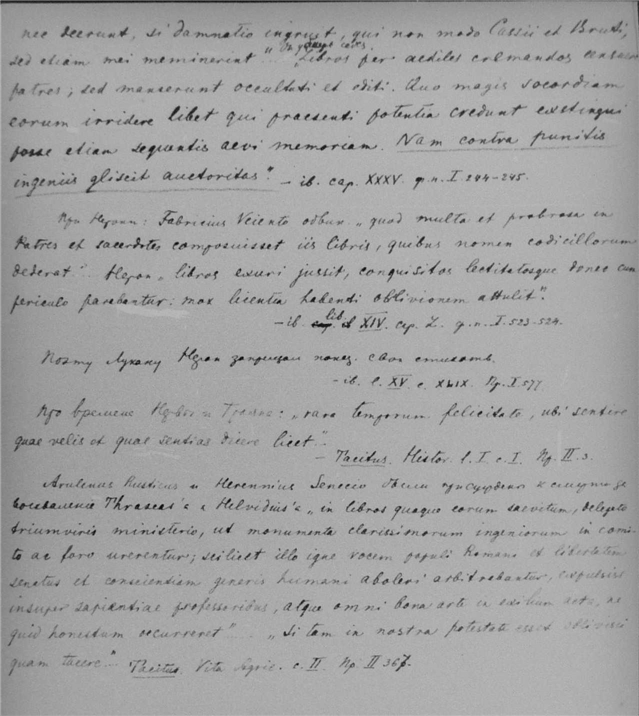 nec deerunt, si damnatio ingruit, qui non modo Cassii et Bruti,
sed etiam mei meminerint"... "Libros per aediles cremandos censuere
patres; sed manserunt occultati et editi. Quo magis socordiam
eorum irridere libet qui praesenti potentia credunt exstingui
posse etiam sequentis aevi memoriam. Nam contra punitis
ingeniis gliscit auctoritas". – ib. cap. XXXV. p. n. I. 244–245.
При Нероне: Fabricius Veiento обвин. „quod multa et probrosa in
Patres et sacerdotes composuisset iis libris, quibus nomen codicillorum
dederat." Нерон „libros exuri jussit, conquisitos lectitatosque donec cum
periculo parabantur: mox licentia habendi oblivionem attulit".
– ib. lib. XIV. cap. L. p. n. I. 523–524.
Поэту Лукану Нерон запрещал показ. свои
– ib. l. XV. c. XLIX. Пр. I. 577.
Про времена Нервы и Траяна: „rara temporum felicitate, ubi sentire
quae velis et quae sentias dicere licet".
– Tacitus. Histor. l. I. c. I. Пр. II. 3.
Arulenus Rusticus и Herennius Senecio были присуждены к смерти за
восхваление Thraseas'а и Helvidius'а „in libros quoque eorum saevitum, delegato
triumviris ministerio, ut monumenta clarissimorum ingeniorum in comi-
tio ac foro urerentur; scilicet illo igne vocem populi Romani et libertatem
senatus et conscientiam generis humani aboleri arbitrabantur, expulsis
insuper sapientiae professoribus, atque omni bona arte in exilium acta, ne
quid honestum occurreret"... „Si tam in nostra potestate esset oblivisci
quam tacere". Tacitus. Vita Agric. c. II. Пр. II 367.